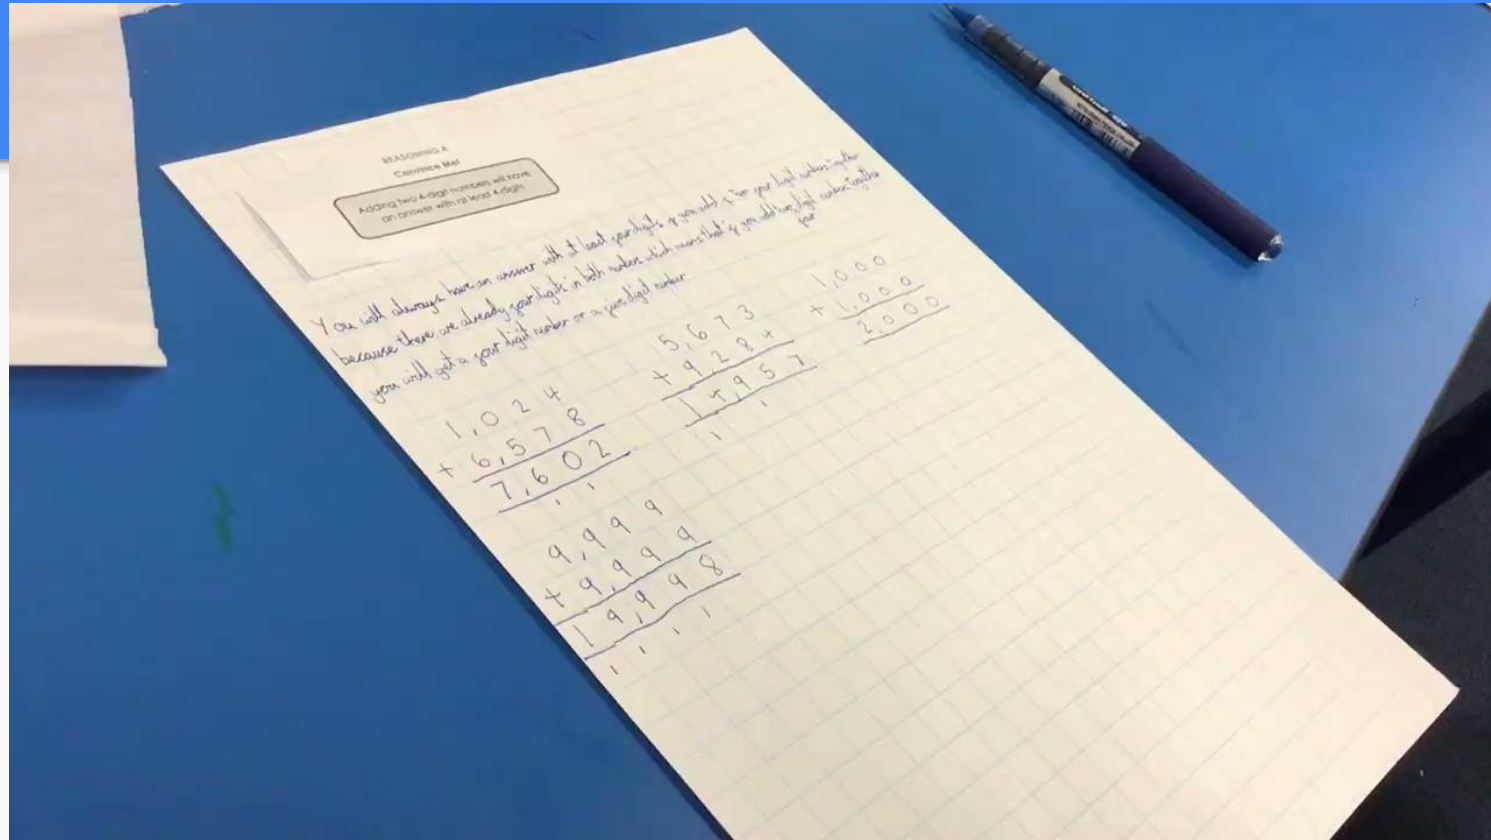 REASONING A
Convince Me!
Adding two 4-digit numbers will have
an answer with at least 4-digits
You will always have an answer with at least four digits if you add two four digit numbers together
because there are already four digits in both numbers which means that if you add two digit numbers together
four
you will get a four digit number or a five digit number.
1,024
+ 6,578
7,602
1 1
5,673
+ 9,284
14,957
1 1
1,000
+ 1,000
2,000
9,999
+ 9,999
19,998
1 1 1 1